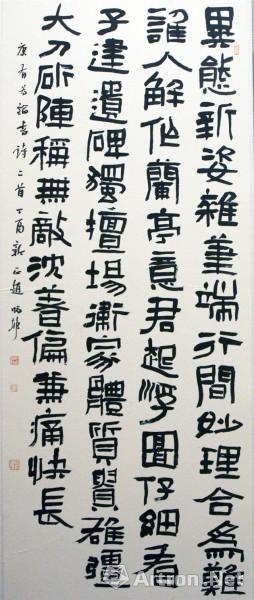 異態新姿雜筆端行間妙理合為難
誰人解作蘭亭意君起浮圖仔細看
子建遺碑獨擅場衛家體質貿雄彊
大刀斫陣稱無敵沈着偏兼痛快長
康有為論書詩二首丁酉新正趙
Artron.Net